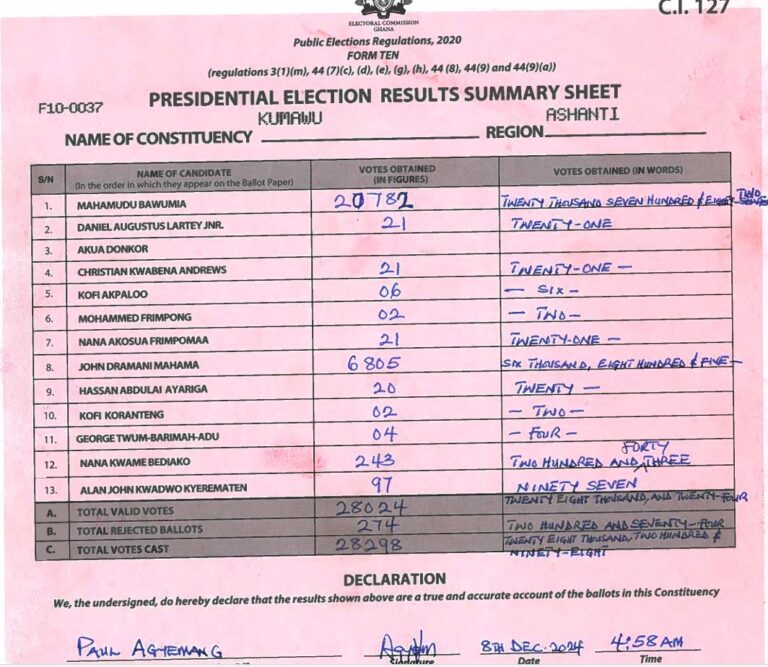 C.I. 127
ELECTORAL COMMISSION
GHANA
Public Elections Regulations, 2020
FORM TEN
(regulations 3(1)(m), 44 (7)(c), (d), (e), (g), (h), 44 (8), 44(9) and 44(9)(a))
F10-0037
PRESIDENTIAL ELECTION RESULTS SUMMARY SHEET
NAME OF CONSTITUENCY KUMAWU REGION ASHANTI
S/N NAME OF CANDIDATE (In the order in which they appear on the Ballot Paper) VOTES OBTAINED (IN FIGURES) VOTES OBTAINED (IN WORDS)
1. MAHAMUDU BAWUMIA 20782 TWENTY THOUSAND SEVEN HUNDRED & EIGHTY TWO
2. DANIEL AUGUSTUS LARTEY JNR. 21 TWENTY-ONE
3. AKUA DONKOR
4. CHRISTIAN KWABENA ANDREWS 21 TWENTY-ONE -
5. KOFI AKPALOO 06 - SIX -
6. MOHAMMED FRIMPONG 02 - TWO -
7. NANA AKOSUA FRIMPOMAA 21 TWENTY-ONE -
8. JOHN DRAMANI MAHAMA 6805 SIX THOUSAND, EIGHT HUNDRED & FIVE -
9. HASSAN ABDULAI AYARIGA 20 TWENTY -
10. KOFI KORANTENG 02 - TWO -
11. GEORGE TWUM-BARIMAH-ADU 04 - FOUR -
12. NANA KWAME BEDIAKO 243 TWO HUNDRED AND FORTY THREE
13. ALAN JOHN KWADWO KYEREMATEN 97 NINETY SEVEN
A. TOTAL VALID VOTES 28024 TWENTY EIGHT THOUSAND, AND TWENTY-FOUR
B. TOTAL REJECTED BALLOTS 274 TWO HUNDRED AND SEVENTY-FOUR
C. TOTAL VOTES CAST 28298 TWENTY EIGHT THOUSAND, TWO HUNDRED & NINETY-EIGHT
DECLARATION
We, the undersigned, do hereby declare that the results shown above are a true and accurate account of the ballots in this Constituency
PAUL AGYEMANG 8TH DEC. 2024 4:58AM
Signature Date Time